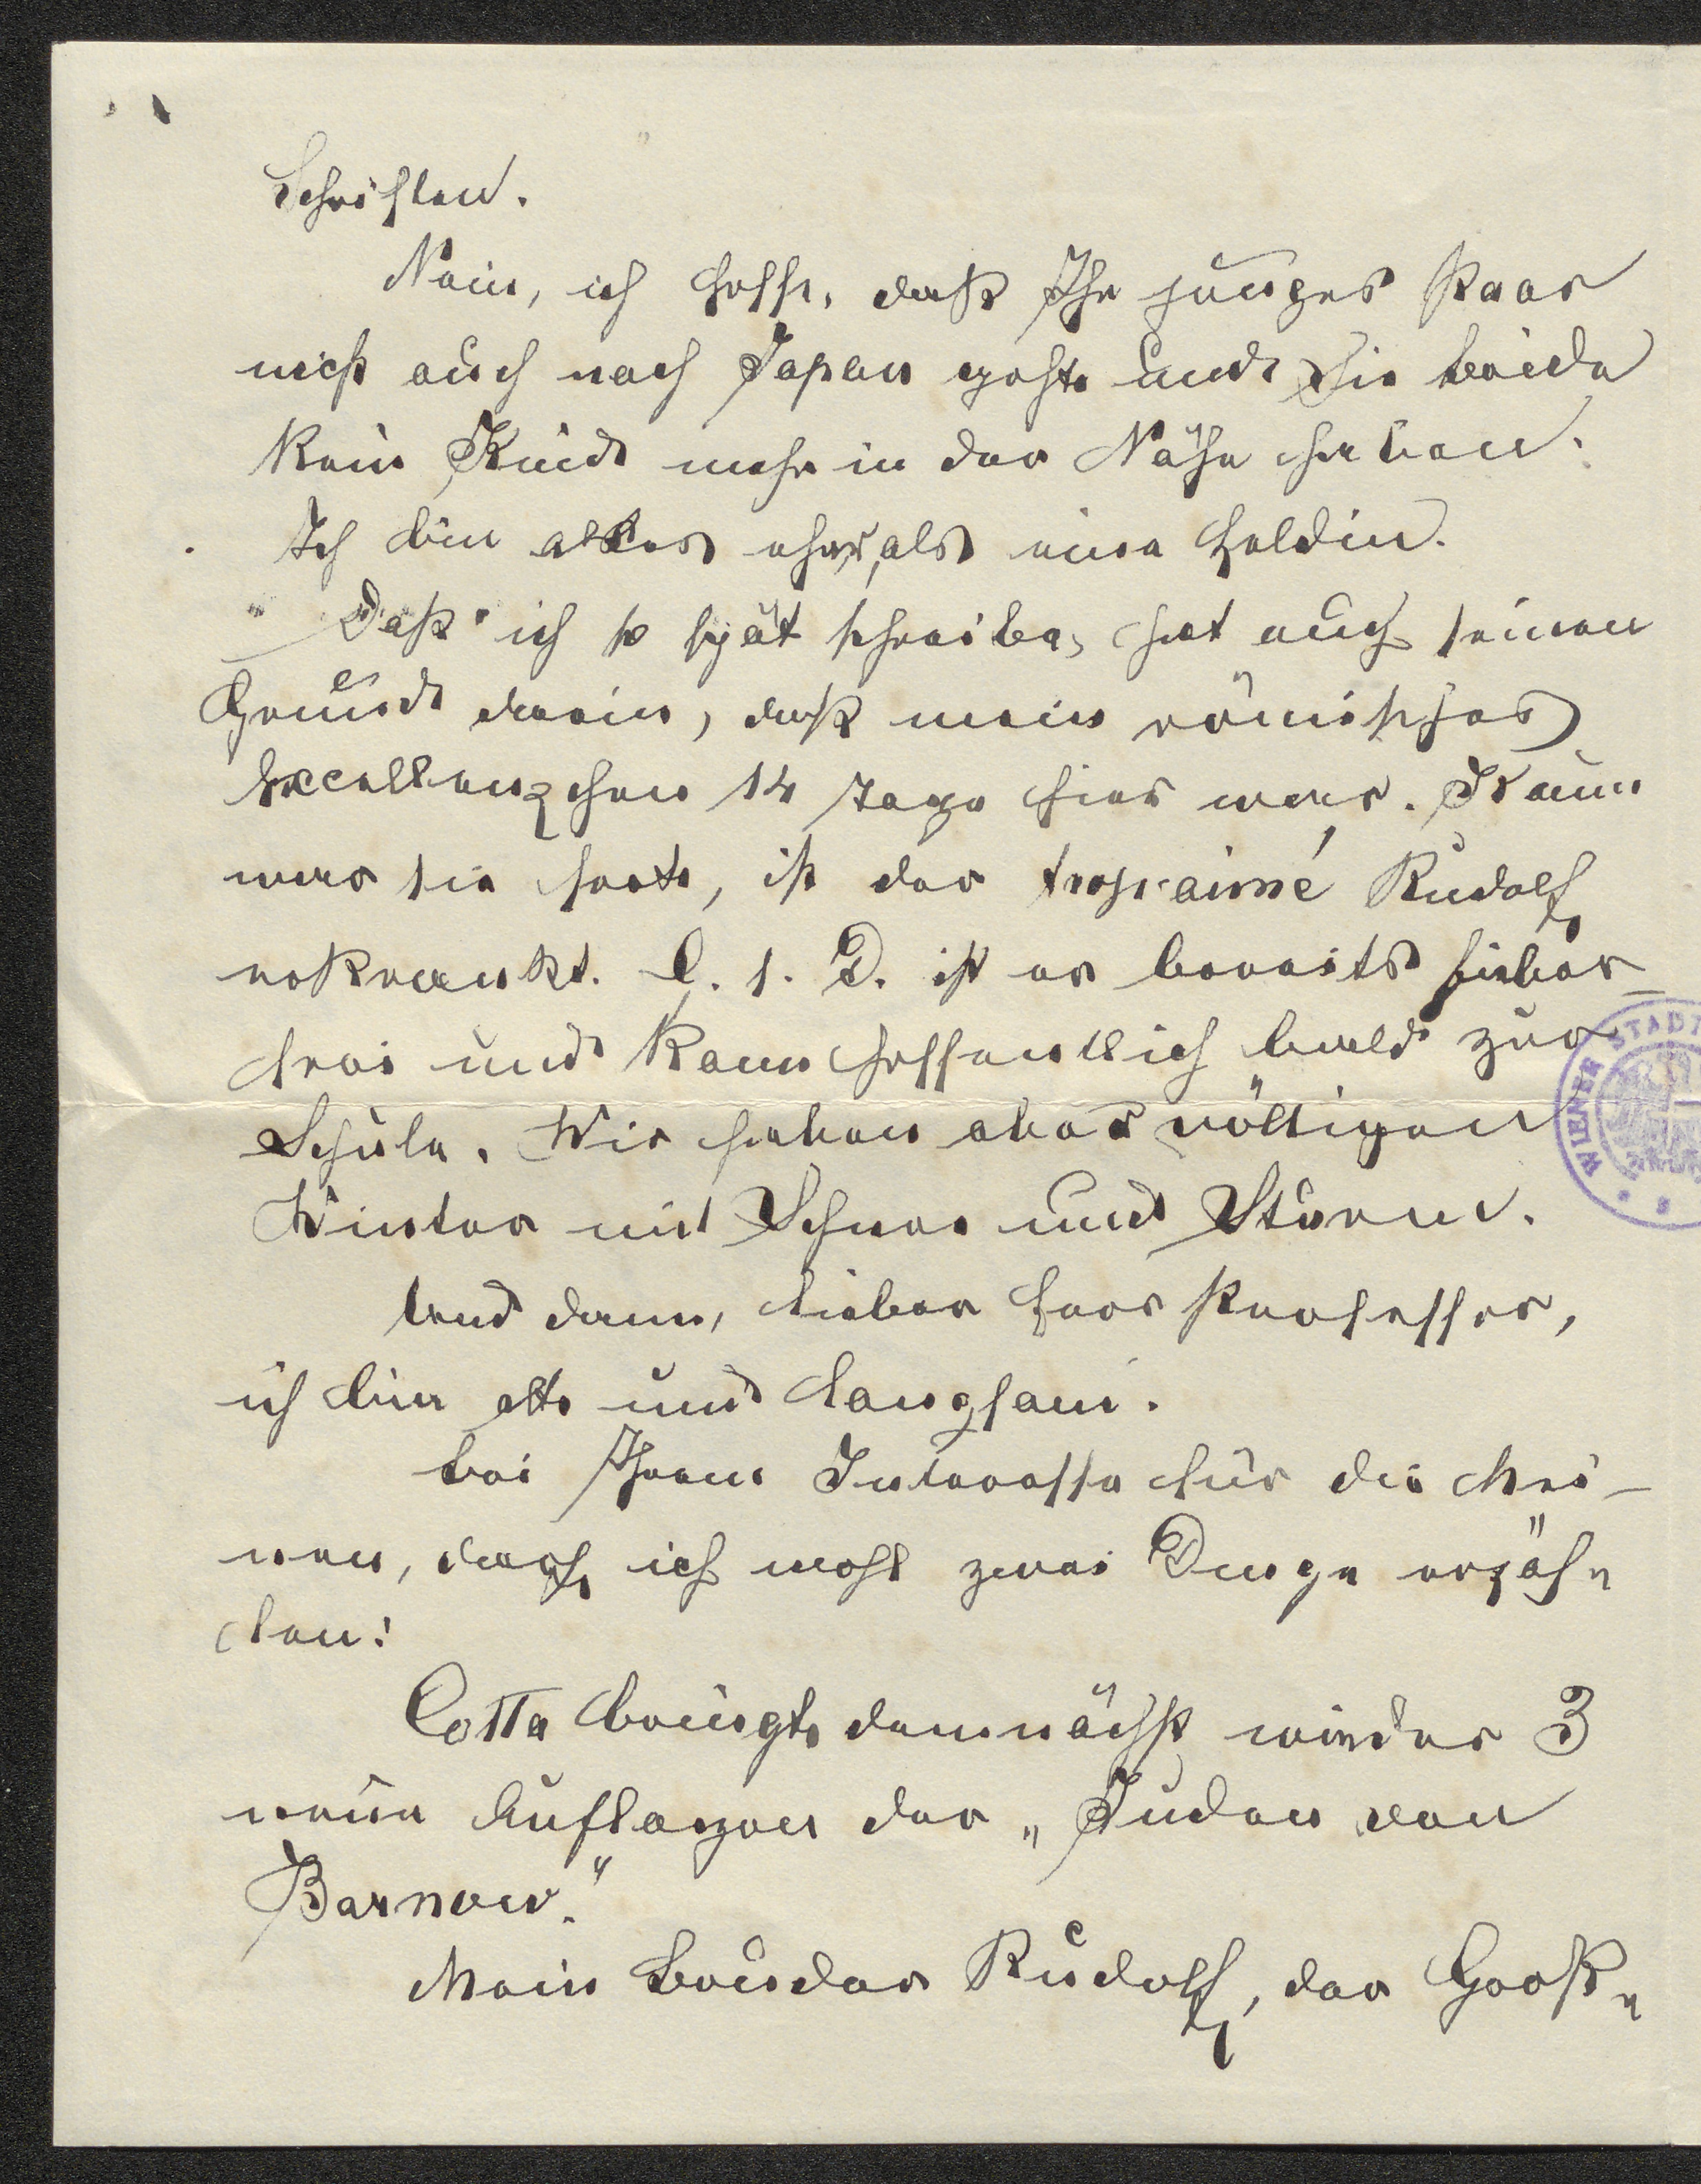 Schriften.
Nein, ich hoffe, daß Ihr junges Paar
nicht auch nach Japan geht und Sie beide
kein Kind mehr in der Nähe haben.
Ich bin alles eher, als eine Heldin.
Daß ich so spät schreibe, hat auch seinen
Grund darin, daß mein römisches
Excellenzchen 14 Tage hier war. Kaum
war sie fort, ist der trop aimé Rudolf
erkrankt. G. s. D. ist er bereits fieber-
frei und kann hoffentlich bald zur
Schule. Wir haben aber völligen
Winter mit Schnee und Sturm.
Und dann, lieber Herr Professor,
ich bin alt und langsam.
Bei Ihrem Interesse für die Mei-
nen, darf ich wohl zwei Dinge erzäh-
len:
Cotta bringt demnächst wieder 3
neue Auflagen der „Juden von
Barnow."
Mein Bruder Rudolf, der Groß-
WIENER STADT